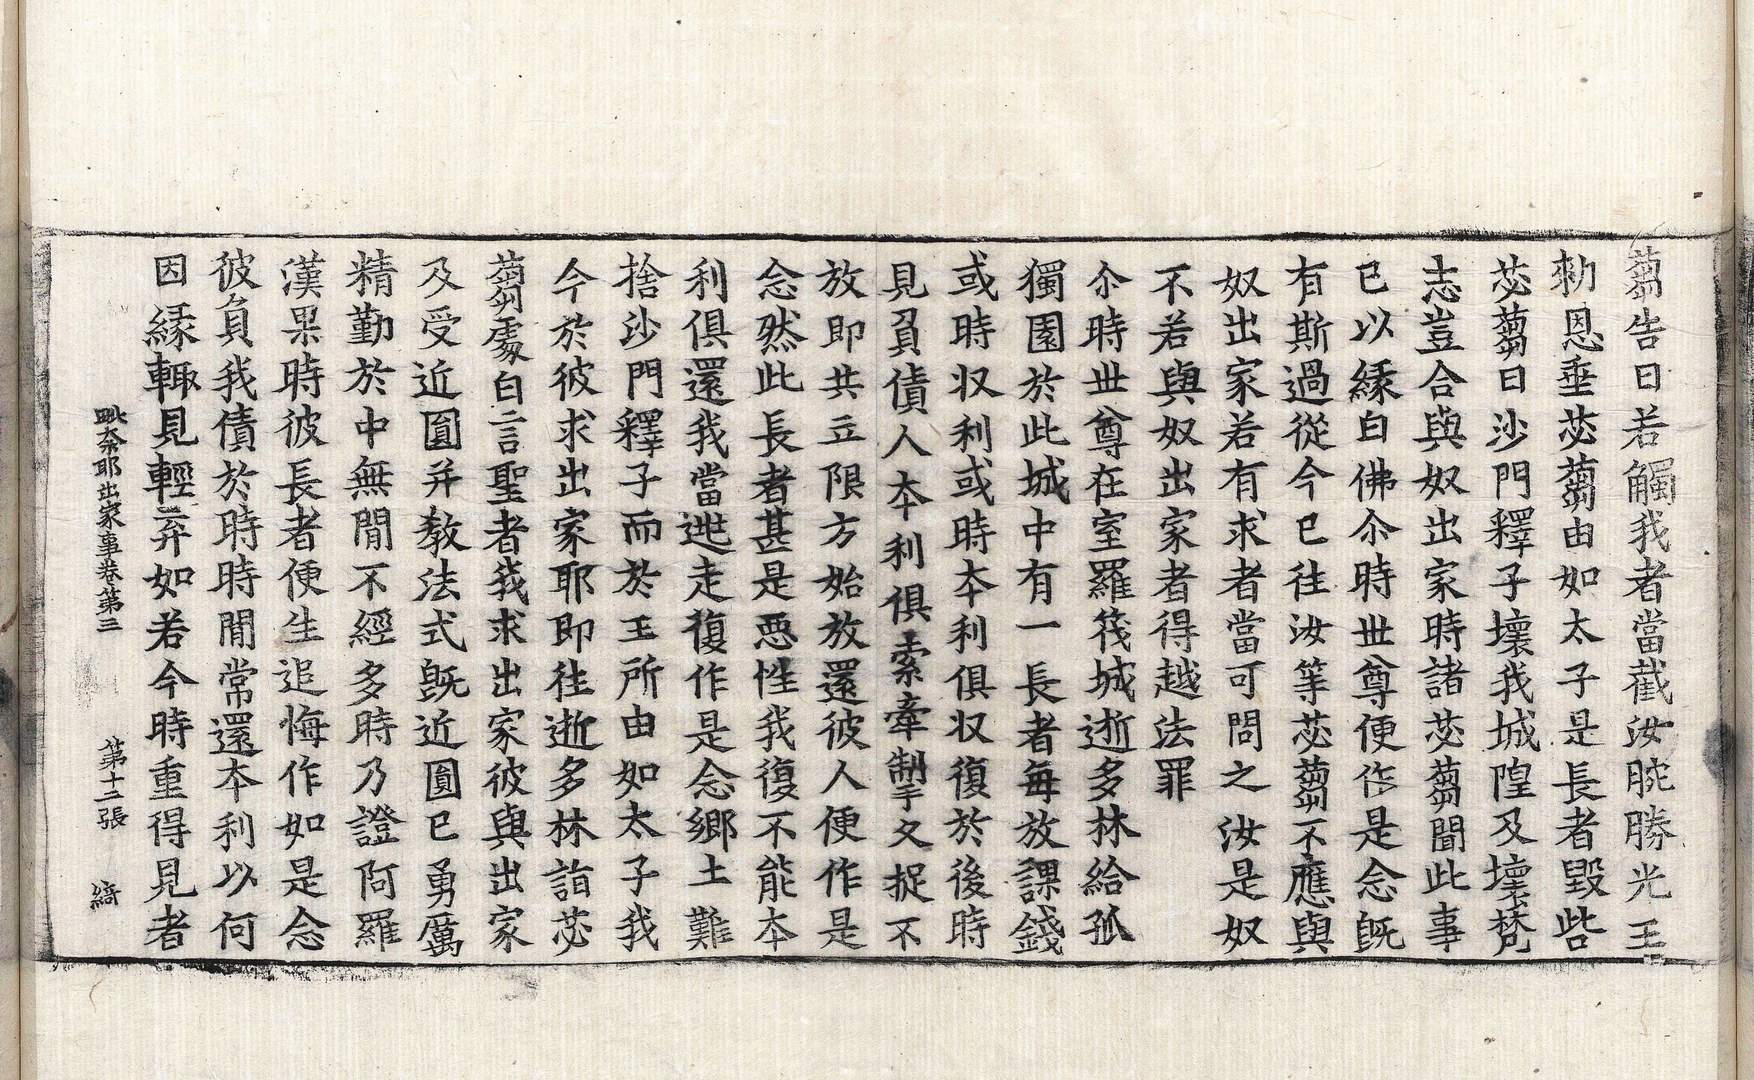 蒭告曰若觸我者當截汝腕勝光王
勑恩垂苾蒭由如太子是長者毀呰
苾蒭曰沙門釋子壞我城隍及壞梵
志豈合與奴出家時諸苾蒭聞此事
已以縁白佛尒時世尊便作是念旣
有斯過從今已往汝等苾蒭不應與
奴出家若有求者當可問之汝是奴
不若與奴出家者得越法罪
尒時世尊在室羅筏城逝多林給孤
獨園於此城中有一長者每放課錢
或時収利或時本利俱収復於後時
見負債人本利俱索牽制手久捉不
放即共立限方始放還彼人便作是
念然此長者甚是惡性我復不能本
利俱還我當逃走復作是念鄉土難
捨沙門釋子而於王所由如太子我
今於彼求出家耶即往逝多林詣苾
蒭處白言聖者我求出家彼與出家
及受近圓并教法式旣近圓已勇厲
精勤於中無閒不經多時乃證阿羅
漢果時彼長者便生追悔作如是念
彼負我債於時時閒常還本利以何
因縁輙見輕弃如若今時重得見者
毗奈耶出家事卷第三　第十二張　綺